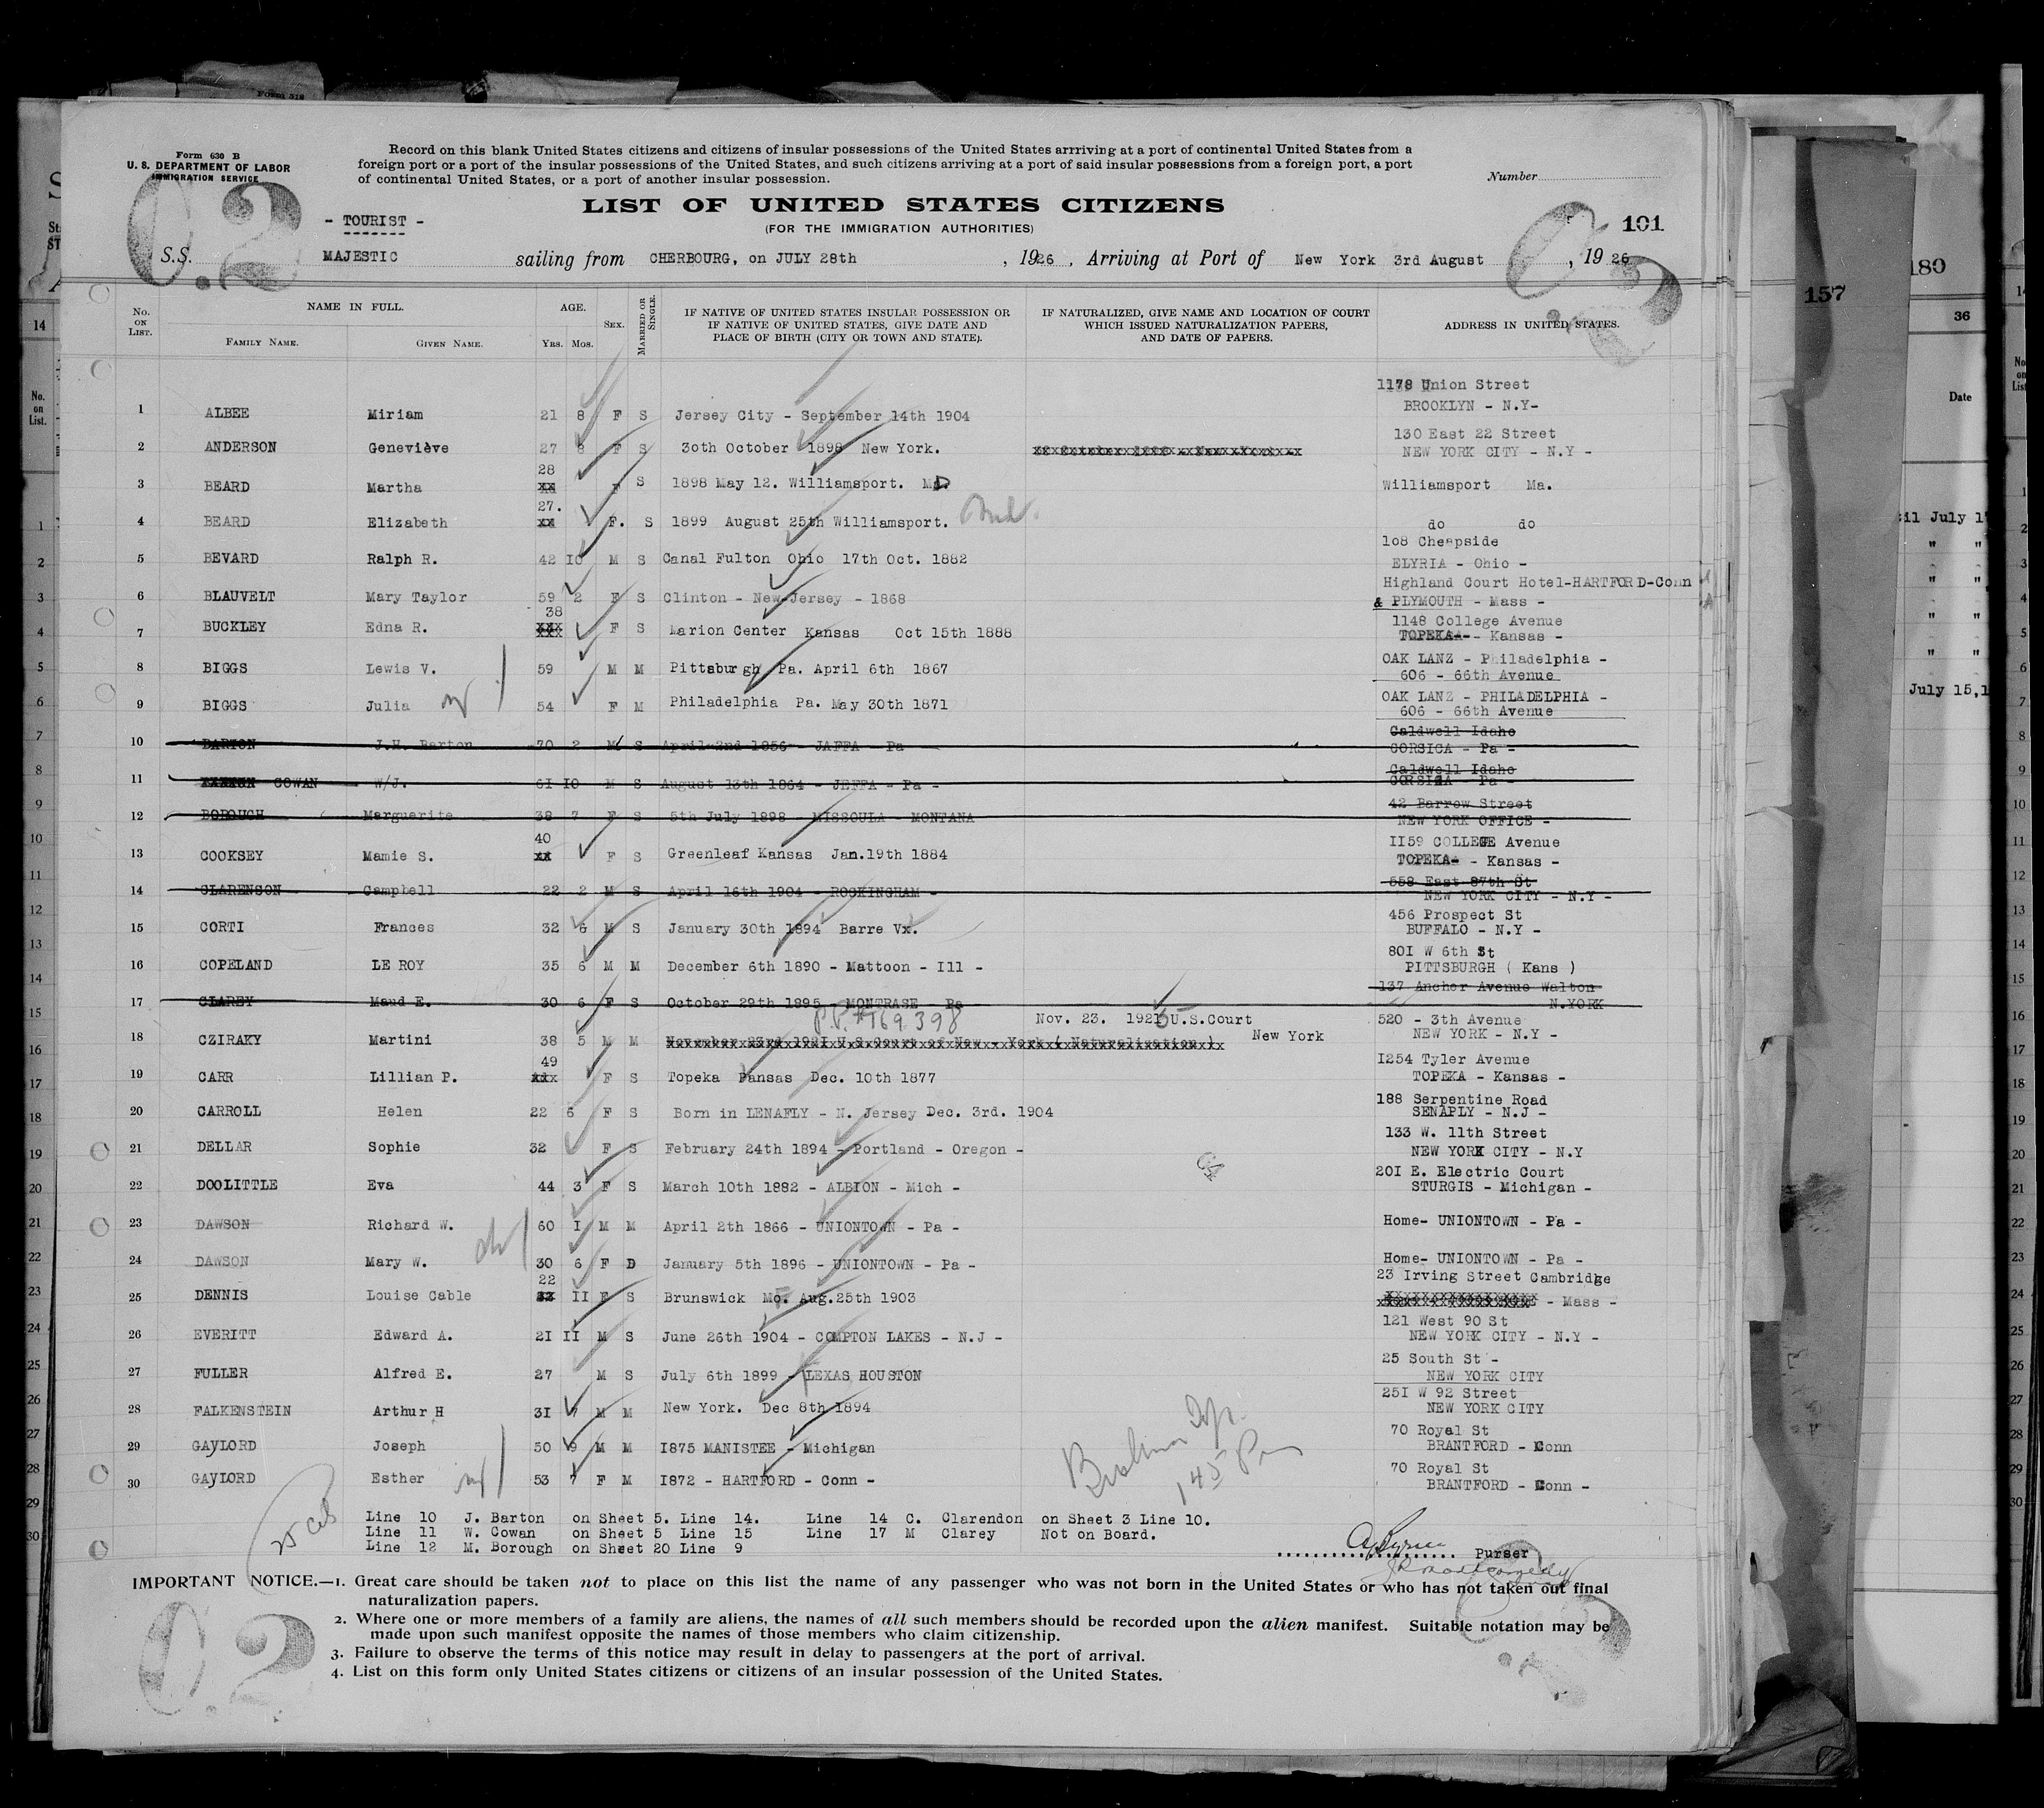 Form 630 B
U. S. DEPARTMENT OF LABOR
IMMIGRATION SERVICE
Record on this blank United States citizens and citizens of insular possessions of the United States arrriving at a port of continental United States from a
foreign port or a port of the insular possessions of the United States, and such citizens arriving at a port of said insular possessions from a foreign port, a port
of continental United States, or a port of another insular possession.
Number
C.2
C.2
- TOURIST -
LIST OF UNITED STATES CITIZENS
(FOR THE IMMIGRATION AUTHORITIES)
101
S.S. MAJESTIC sailing from CHERBOURG, on JULY 28th, 1926, Arriving at Port of New York 3rd August, 1926
No. ON LIST. NAME IN FULL. FAMILY NAME. GIVEN NAME. AGE. YRS. MOS. SEX. MARRIED OR SINGLE. IF NATIVE OF UNITED STATES INSULAR POSSESSION OR IF NATIVE OF UNITED STATES, GIVE DATE AND PLACE OF BIRTH (CITY OR TOWN AND STATE). IF NATURALIZED, GIVE NAME AND LOCATION OF COURT WHICH ISSUED NATURALIZATION PAPERS, AND DATE OF PAPERS. ADDRESS IN UNITED STATES.
1178 Union Street
1 ALBEE Miriam 21 8 F S Jersey City - September 14th 1904 BROOKLYN - N.Y-
130 East 22 Street
2 ANDERSON Geneviève 27 8 F S 30th October 1898 New York. NEW YORK CITY - N.Y -
28
3 BEARD Martha xx F S 1898 May 12. Williamsport. MD Williamsport Ma.
27.
4 BEARD Elizabeth xx F. S 1899 August 25th Williamsport. Md. do do
108 Cheapside
5 BEVARD Ralph R. 42 10 M S Canal Fulton Ohio 17th Oct. 1882 ELYRIA - Ohio -
Highland Court Hotel-HARTFORD-Conn
6 BLAUVELT Mary Taylor 59 2 F S Clinton - New-Jersey - 1868 & PLYMOUTH - Mass -
38 1148 College Avenue
7 BUCKLEY Edna R. xxx F S Marion Center Kansas Oct 15th 1888 TOPEKA-- Kansas -
OAK LANZ - Philadelphia -
8 BIGGS Lewis V. 59 M M Pittsburgh Pa. April 6th 1867 606 - 66th Avenue
OAK LANZ - PHILADELPHIA -
9 BIGGS Julia 54 F M Philadelphia Pa. May 30th 1871 606 - 66th Avenue
Caldwell Idaho
10 BARTON J.H. Barton 70 2 M S April 2nd 1856 - JAFFA - Pa CORSICA - Pa -
Caldwell Idaho
11 COWAN W/J. 61 10 M S August 13th 1864 - JEFFA - Pa - CORSICA - Pa -
42 Barrow Street
12 BOROUGH Marguerite 38 7 F S 5th July 1898 - MISSOULA - MONTANA NEW YORK OFFICE -
40 1159 COLLEGE Avenue
13 COOKSEY Mamie S. xx F S Greenleaf Kansas Jan.19th 1884 TOPEKA- - Kansas -
558 East 87th St
14 CLARENSON Campbell 22 2 M S April 16th 1904 - ROCKINGHAM - NEW YORK CITY - N.Y -
456 Prospect St
15 CORTI Frances 32 6 M S January 30th 1894 Barre Vx. BUFFALO - N.Y -
801 W 6th St
16 COPELAND LE ROY 35 6 M M December 6th 1890 - Mattoon - Ill - PITTSBURGH ( Kans )
137 Anchor Avenue Walton
17 CLAREY Maud E. 30 6 F S October 29th 1895 - MONTRASE - Pa N.YORK
P.P. # 169398 Nov. 23. 1921 U.S.Court 520 - 3th Avenue
18 CZIRAKY Martini 38 5 M M November 23rd 1921 U.S.Court of New - York ( Naturalization ) New York NEW YORK - N.Y -
49 1254 Tyler Avenue
19 CARR Lillian P. xxx F S Topeka Pansas Dec. 10th 1877 TOPEKA - Kansas -
188 Serpentine Road
20 CARROLL Helen 22 6 F S Born in LENAFLY - N. Jersey Dec. 3rd. 1904 SENAPLY - N.J -
133 W. 11th Street
21 DELLAR Sophie 32 F S February 24th 1894 - Portland - Oregon - NEW YORK CITY - N.Y
201 E. Electric Court
22 DOOLITTLE Eva 44 3 F S March 10th 1882 - ALBION - Mich - STURGIS - Michigan -
23 DAWSON Richard W. 60 1 M M April 2th 1866 - UNIONTOWN - Pa - Home- UNIONTOWN - Pa -
24 DAWSON Mary W. 30 6 F D January 5th 1896 - UNIONTOWN - Pa - Home- UNIONTOWN - Pa -
22 23 Irving Street Cambridge
25 DENNIS Louise Cable II F S Brunswick Mo. Aug.25th 1903 - Mass -
121 West 90 St
26 EVERITT Edward A. 21 II M S June 26th 1904 - COMPTON LAKES - N.J - NEW YORK CITY - N.Y -
25 South St -
27 FULLER Alfred E. 27 M S July 6th 1899 - LEXAS HOUSTON NEW YORK CITY
251 W 92 Street
28 FALKENSTEIN Arthur H 31 7 M M New York. Dec 8th 1894 NEW YORK CITY
70 Royal St
29 GAYLORD Joseph 50 9 M M 1875 MANISTEE - Michigan BRANTFORD - Conn
70 Royal St
30 GAYLORD Esther 53 7 F M 1872 - HARTFORD - Conn - BRANTFORD - Conn -
145
Line 10 J. Barton on Sheet 5. Line 14. Line 14 C. Clarendon on Sheet 3 Line 10.
Line 11 W. Cowan on Sheet 5 Line 15 Line 17 M Clarey Not on Board.
Line 12 M. Borough on Sheet 20 Line 9
Purser
IMPORTANT NOTICE.—1. Great care should be taken not to place on this list the name of any passenger who was not born in the United States or who has not taken out final
naturalization papers.
2. Where one or more members of a family are aliens, the names of all such members should be recorded upon the alien manifest. Suitable notation may be
made upon such manifest opposite the names of those members who claim citizenship.
3. Failure to observe the terms of this notice may result in delay to passengers at the port of arrival.
4. List on this form only United States citizens or citizens of an insular possession of the United States.
C.2
C.2
157
180
36
Date
July 15,1